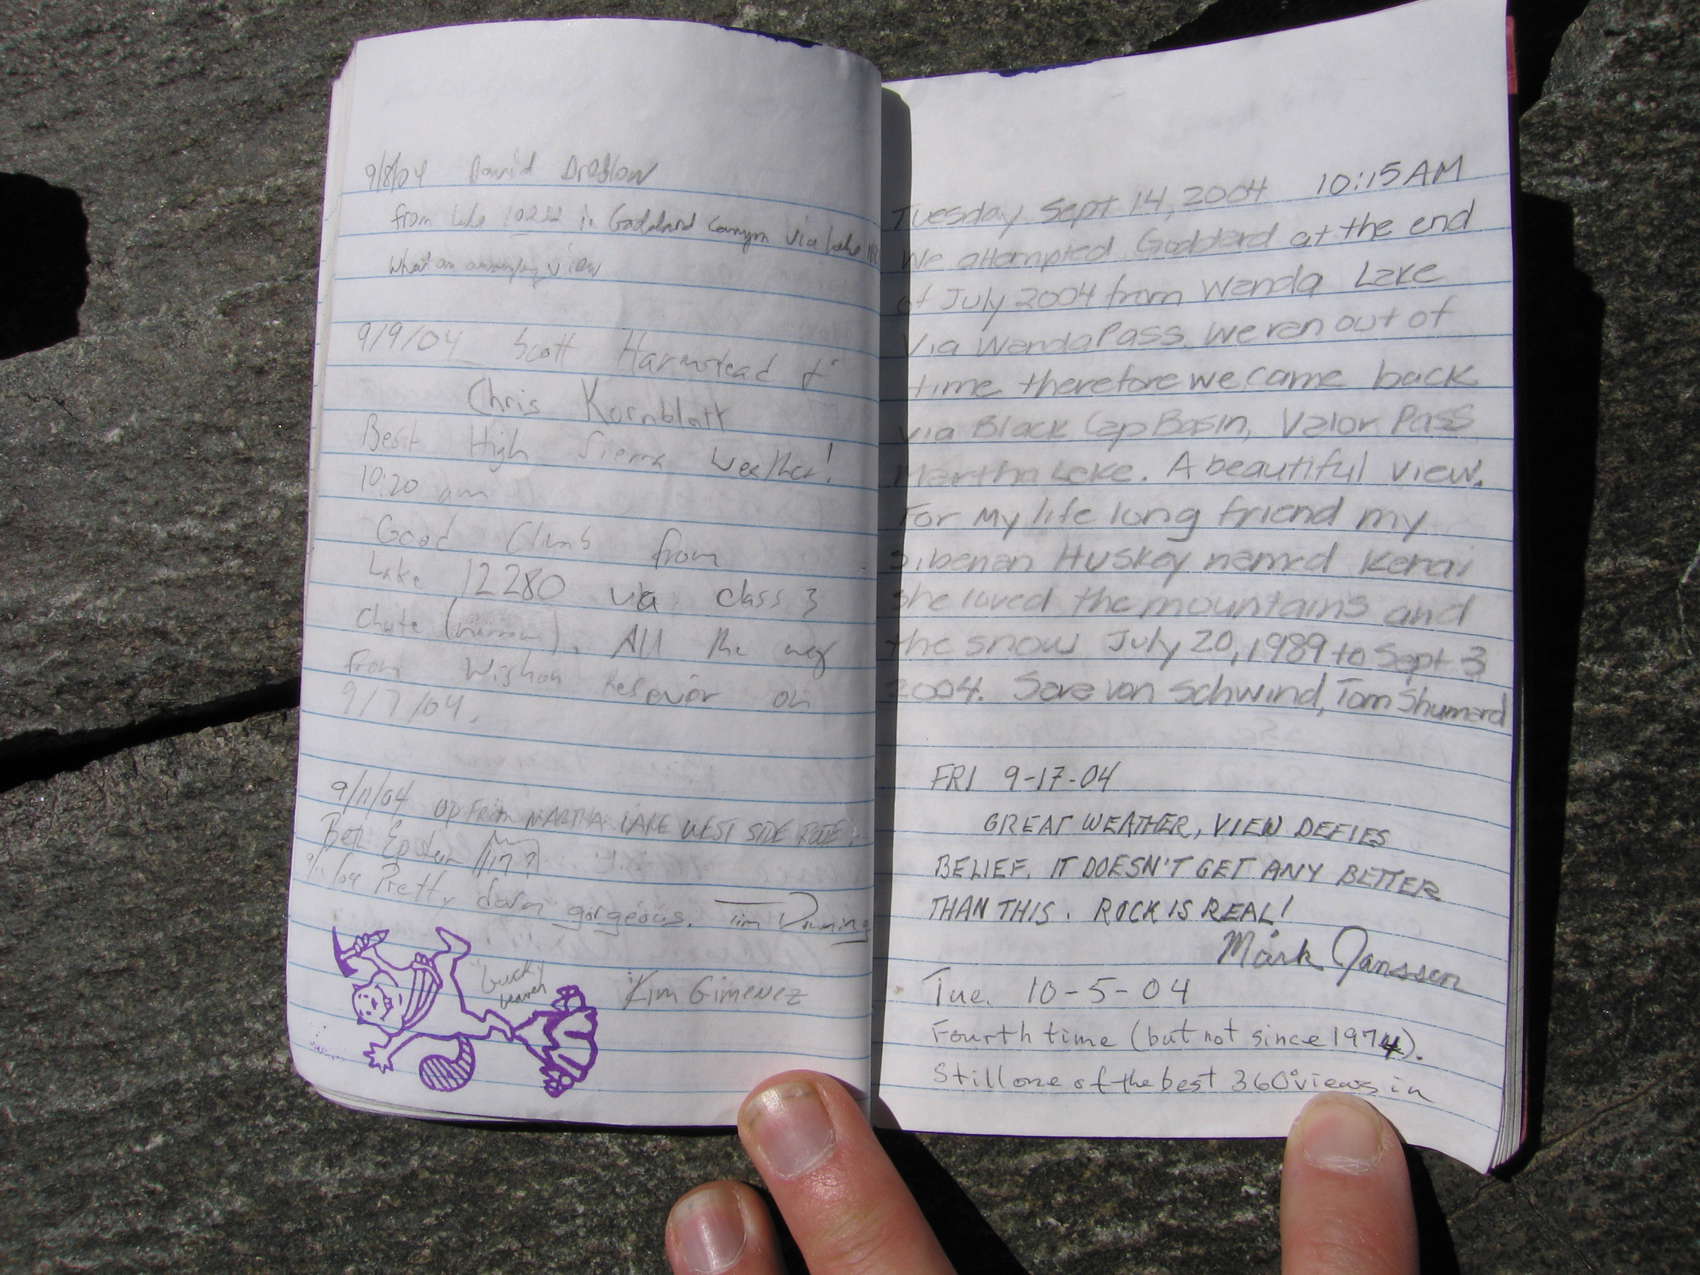 9/8/04 David
from Lake in Goddard Canyon via Lake
What an amazing view
9/9/04 Scott Harmstead &
Chris Kornblatt
Best High Sierra Weather!
10:20 am
Good Climb from
Lake 12280 via class 3
chute (narrow). All the way
from Wishon Resevoir on
9/7/04.
9/11/04 UP FROM MARTHA LAKE WEST SIDE
Epstein
Pretty darn gorgeous. Tim
bucky
beaver
Kim Gimenez
Tuesday Sept 14, 2004 10:15 AM
We attempted Goddard at the end
of July 2004 from Wanda Lake
via Wanda Pass. We ran out of
time therefore we came back
via Black Cap Basin, Valor Pass
Martha Lake. A beautiful view.
For my life long friend my
Siberian Huskey named Kenai
she loved the mountains and
the snow July 20, 1989 to Sept 3
2004. Sara von Schwind, Tom Shumard
FRI 9-17-04
GREAT WEATHER, VIEW DEFIES
BELIEF. IT DOESN'T GET ANY BETTER
THAN THIS. ROCK IS REAL!
Mark Janssen
Tue. 10-5-04
Fourth time (but not since 1974).
Still one of the best 360° views in